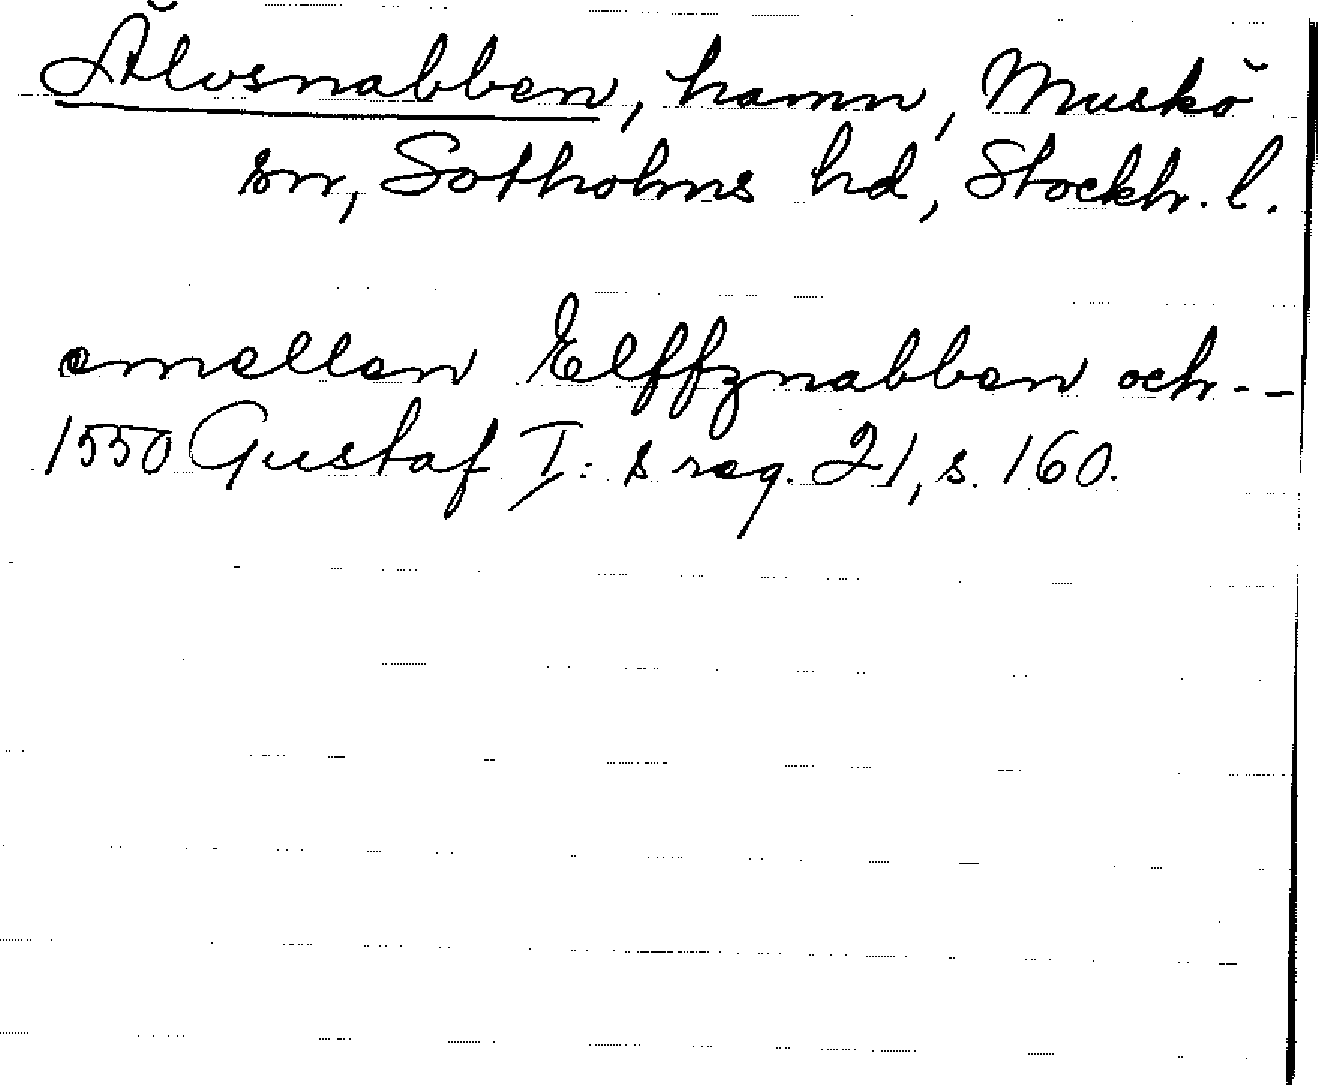 Älvsnabben, hamn, Muskö
sn, Sotholms hd, Stockh. l.
emellan Elffznabben och --
1550 Gustaf I:s reg. 21, s. 160.